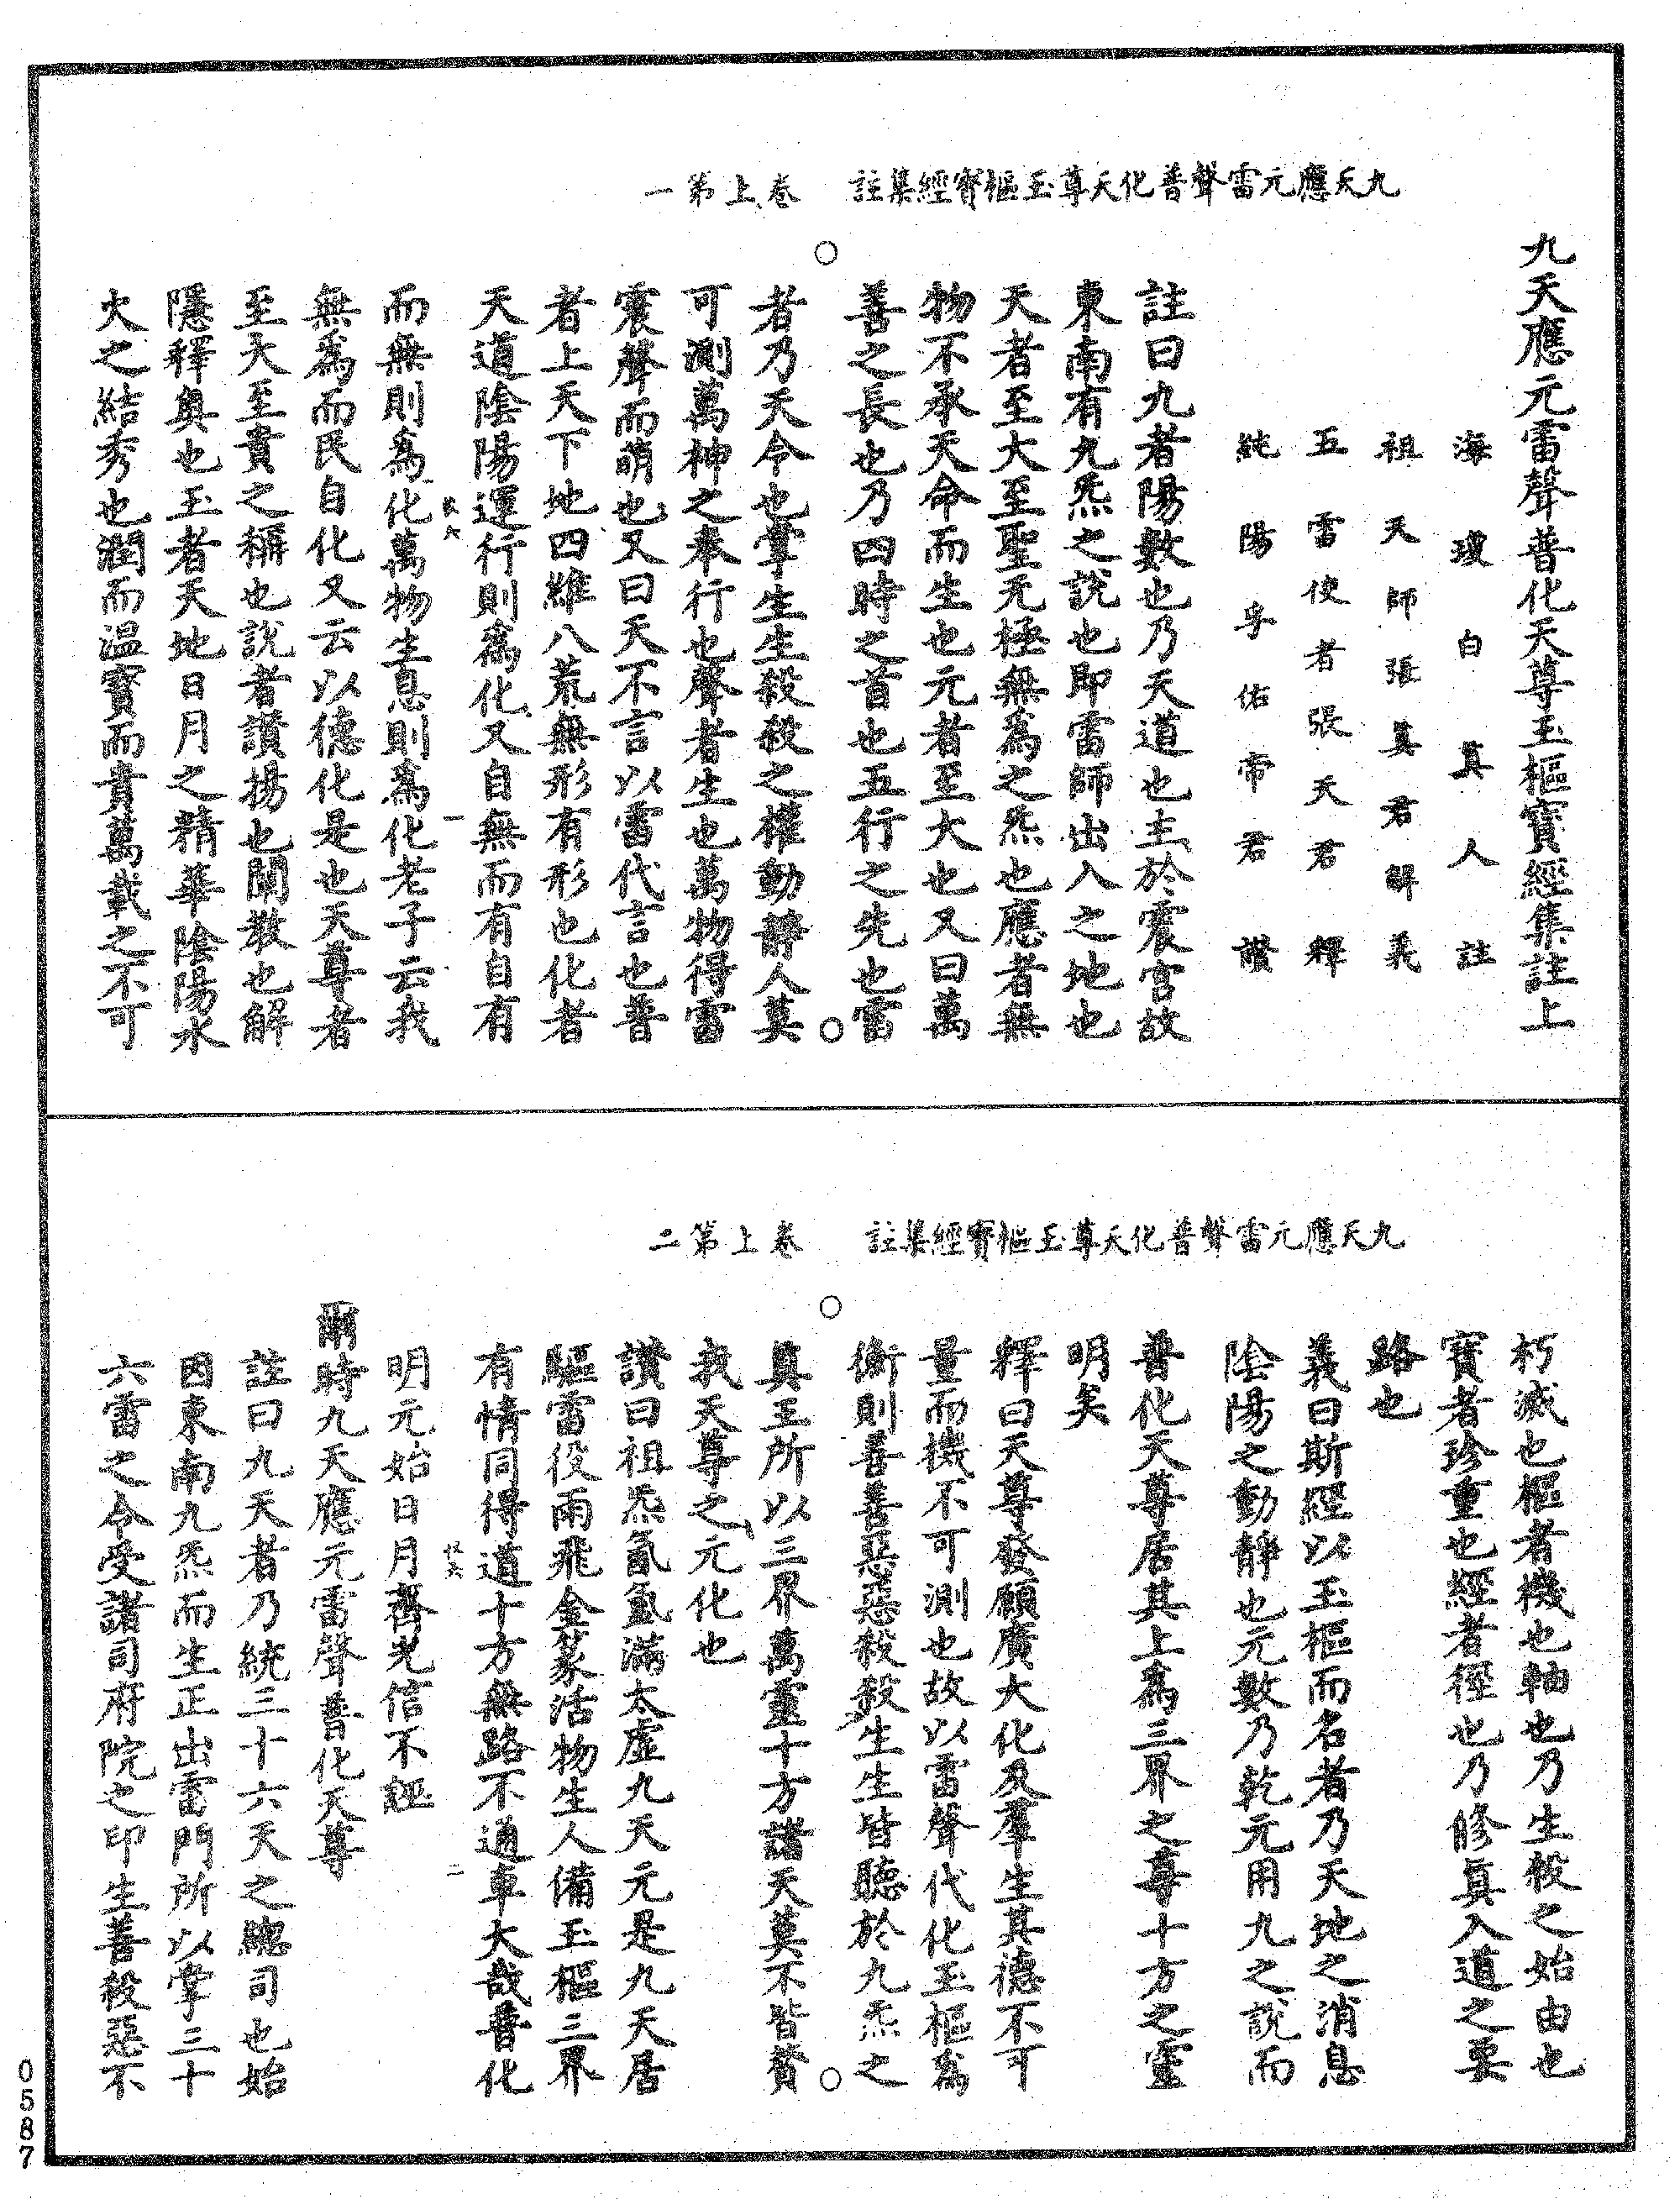 九天應元雷聲普化天尊玉樞寶經集註　卷上第一
九天應元雷聲普化天尊玉樞寶經集註上
海瓊白真人註
祖天師張真君解義
五雷使者張天君釋
純陽孚佑帝君讚
註曰九者陽數也乃天道也主於震宮故
東南有九炁之說也即雷師出入之地也
天者至大至聖无極無為之炁也應者無
物不承天命而生也元者至大也又曰萬
善之長也乃四時之首也五行之先也雷
者乃天令也掌生生殺殺之權動靜人莫
可測萬神之奉行也聲者生也萬物得雷
震聲而萌也又曰天不言以雷代言也普
者上天下地四維八荒無形有形也化者
天道陰陽運行則為化又自無而有自有
而無則為化萬物生息則為化老子云我
無為而民自化又云以德化是也天尊者
至大至貴之稱也說者讚揚也開教也解
隱釋奧也玉者天地日月之精華陰陽水
火之結秀也潤而温寶而貴萬載之不可
一
九天應元雷聲普化天尊玉樞寶經集註　卷上第二
朽滅也樞者機也軸也乃生殺之始由也
寶者珍重也經者徑也乃修真入道之要
路也
義曰斯經以玉樞而名者乃天地之消息
陰陽之動靜也元數乃乾元用九之說而
普化天尊居其上為三界之尊十方之靈
明矣
釋曰天尊發願廣大化及羣生其德不可
量而機不可測也故以雷聲代化玉樞為
衡則善善惡惡殺殺生生皆聽於九炁之
真王所以三界萬靈十方諸天莫不皆賛
我天尊之元化也
讚曰祖炁氤氳滿太虛九天元是九天居
驅雷役雨飛金篆活物生人備玉樞三界
有情同得道十方無路不通車大哉普化
明元始日月齊光信不誣
爾時九天應元雷聲普化天尊
註曰九天者乃統三十六天之總司也始
因東南九炁而生正出雷門所以掌三十
六雷之令受諸司府院之印生善殺惡不
二
0587